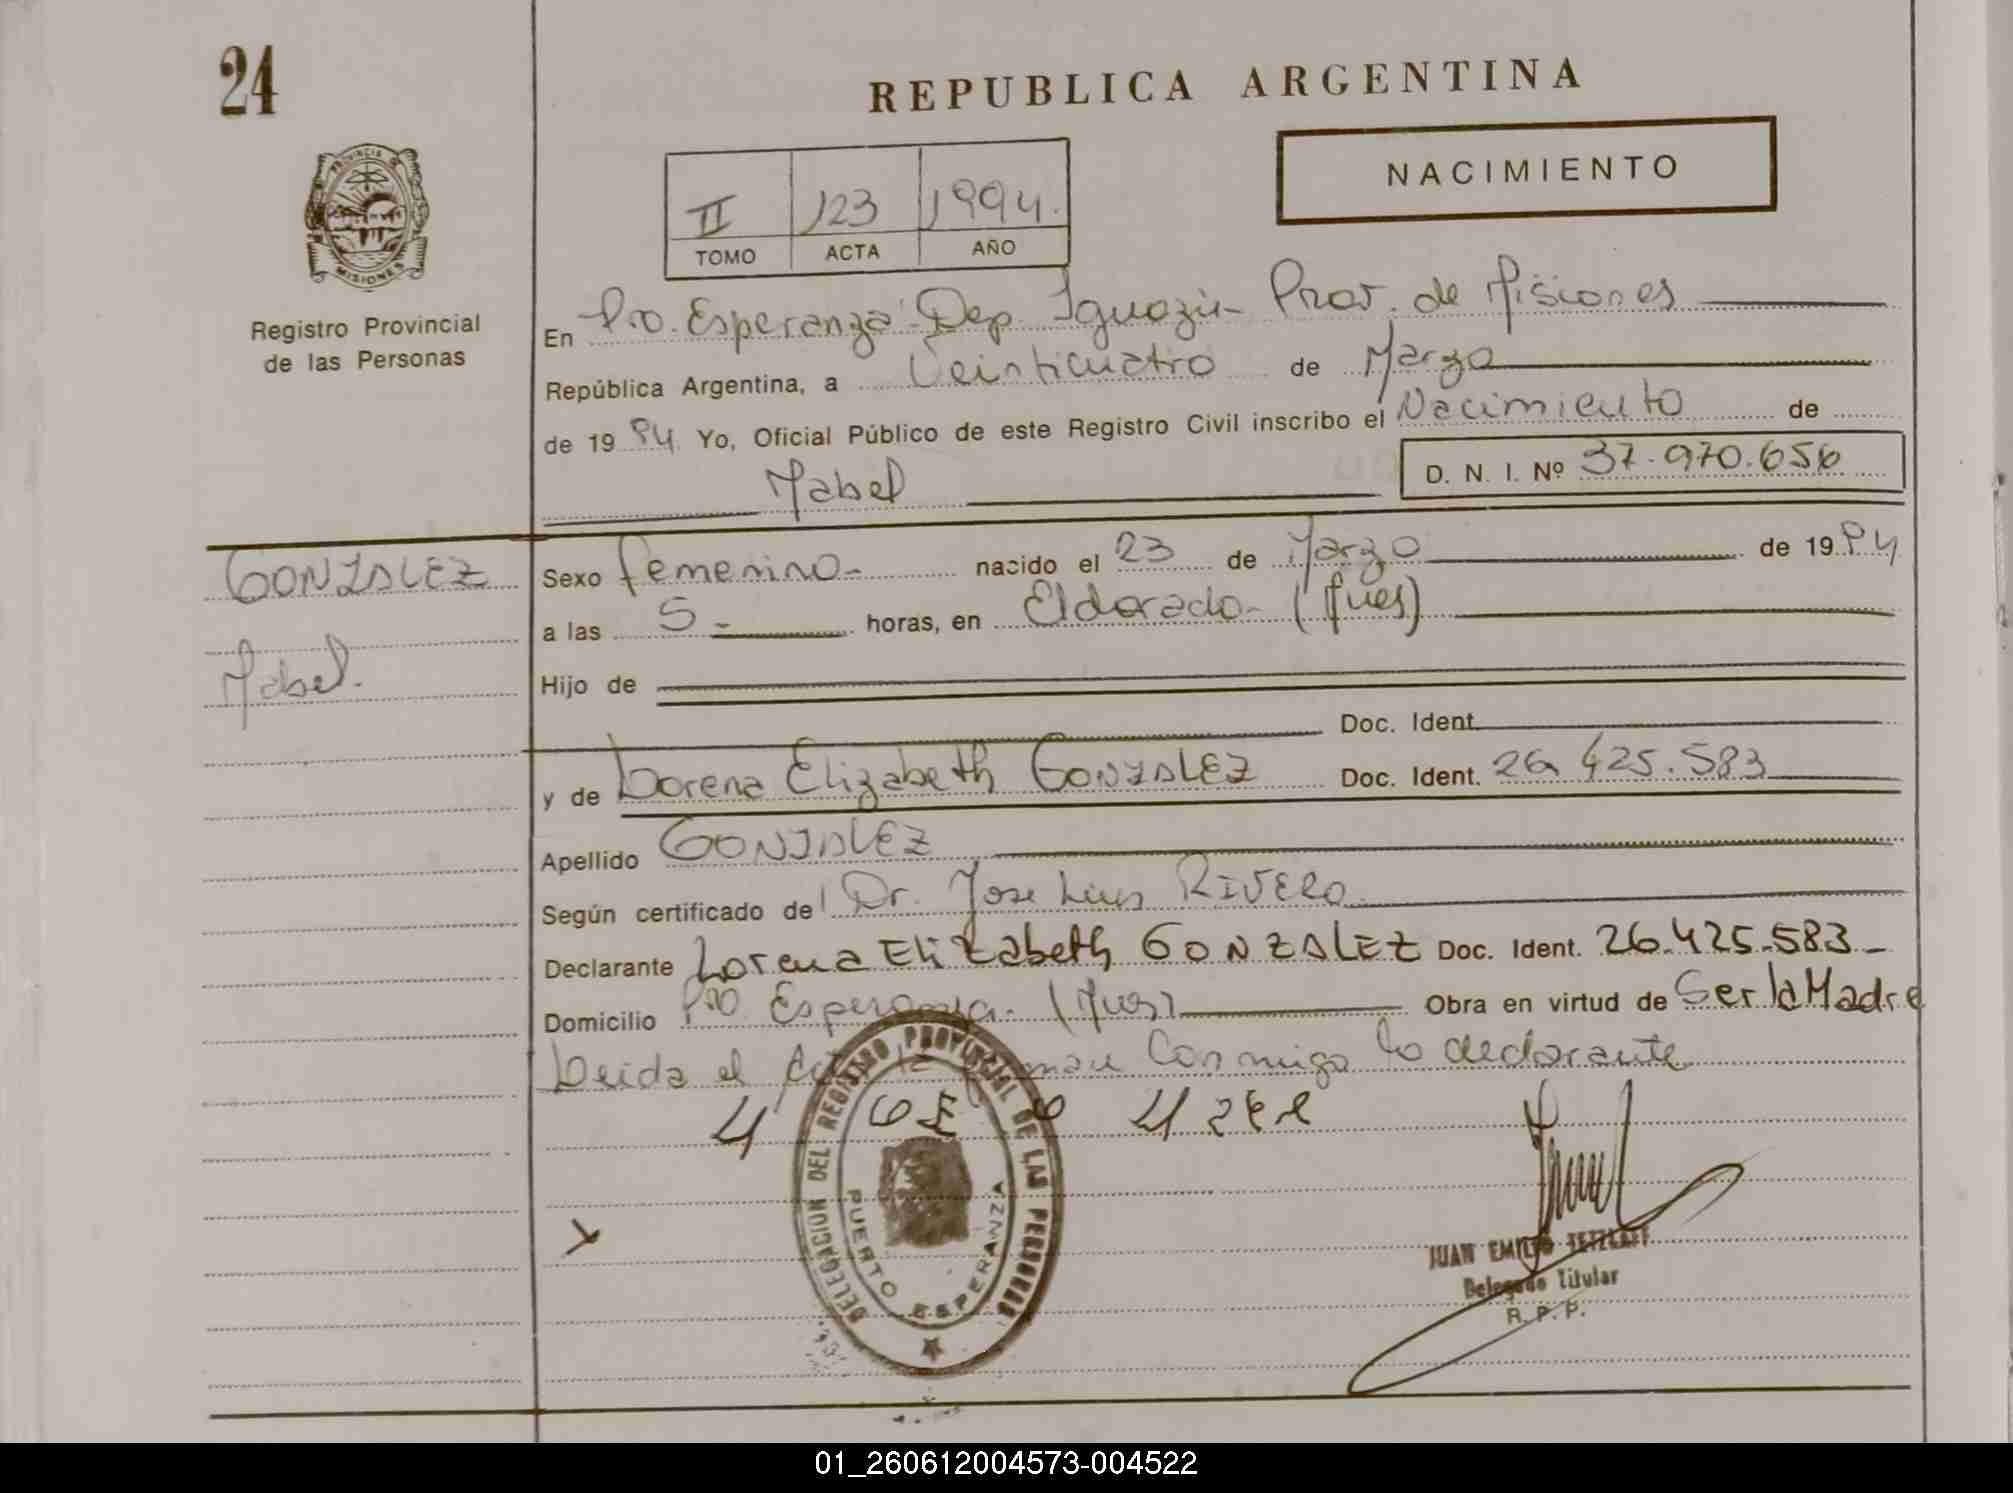 24
REPUBLICA ARGENTINA
NACIMIENTO
PROVINCIA DE
MISIONES
II 123 1994.
TOMO ACTA AÑO
Registro Provincial
de las Personas
En Pto. Esperanza - Dep. Iguazú - Prov. de Misiones
República Argentina, a Veinticuatro de Marzo
de 1994 Yo, Oficial Público de este Registro Civil inscribo el Nacimiento de
Mabel D. N. I. Nº 37.970.656
GONZALEZ
Mabel.
Sexo femenino - nacido el 23 de Marzo de 1994
a las 5 - horas, en Eldorado - (Mnes)
Hijo de
Doc. Ident.
y de Lorena Elizabeth GONZALEZ Doc. Ident. 26.425.583
Apellido GONZALEZ
Según certificado del Dr. Jose Luis RIVERO
Declarante Lorena Elizabeth GONZALEZ Doc. Ident. 26.425.583 -
Domicilio Pto Esperanza - (Mnes) Obra en virtud de Ser la Madre
Leida el conmigo la declarante
DELEGACION DEL REGISTRO PROVINCIAL DE LAS PERSONAS
PUERTO ESPERANZA
JUAN EMILIO TETZLAFF
Delegado Titular
R. P. P.
01_260612004573-004522